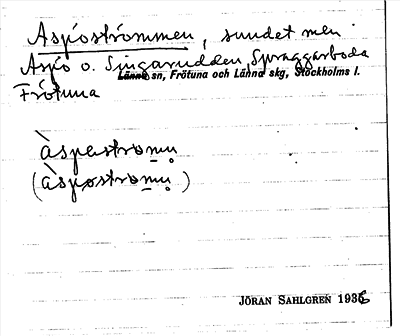 Aspöströmmen, sundet mell
Aspö o. Singarudden, Spraggarboda
Länna sn, Frötuna och Länna skg, Stockholms l.
Frötuna
àspastromn̥
(àspøstromn̥)
JÖRAN SAHLGREN 1936